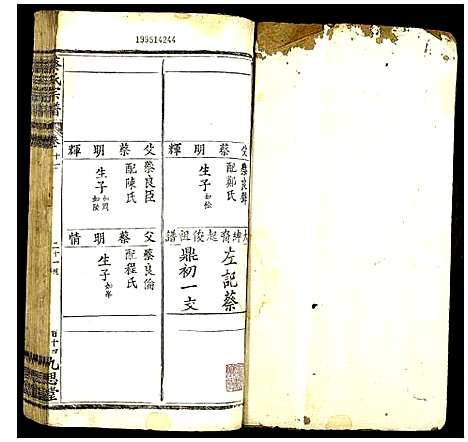 195514244
父蔡明輝
蔡良
配鄭氏
生子如松
裔起俊祖譜
左記蔡
鼎初一支
父蔡明輝
蔡良臣
配陳氏
生子如
父蔡明情
蔡良倫
配程氏
生子如
蔡氏宗譜
卷十
二十一
百十四
九思堂